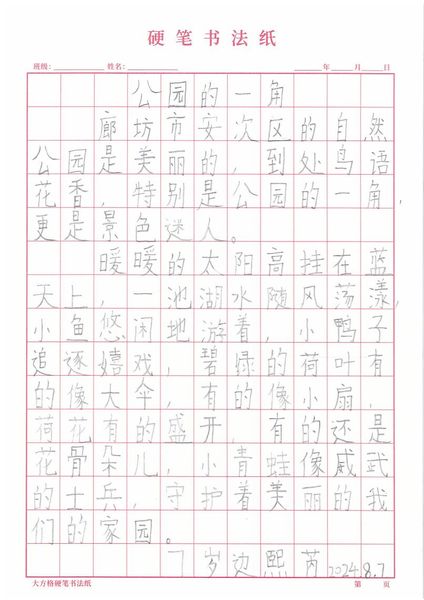 硬笔书法纸
班级: 姓名: 年 月 日
公园的一角
廊坊市安次区的自然
公园是美丽的，到处鸟语
花香，特别是公园的一角，
更是景色迷人。
暖暖的太阳高挂在蓝
天上，一池湖水随风荡漾，
小鱼悠闲地游着，小鸭子
追逐嬉戏，碧绿的荷叶有
的像大伞，有的像小扇，
荷花有的盛开，有的还是
花骨朵儿，小青蛙像威武
的士兵，守护着美丽的我
们的家园。
7岁边熙芮2024.8.7
大方格硬笔书法纸 第 页